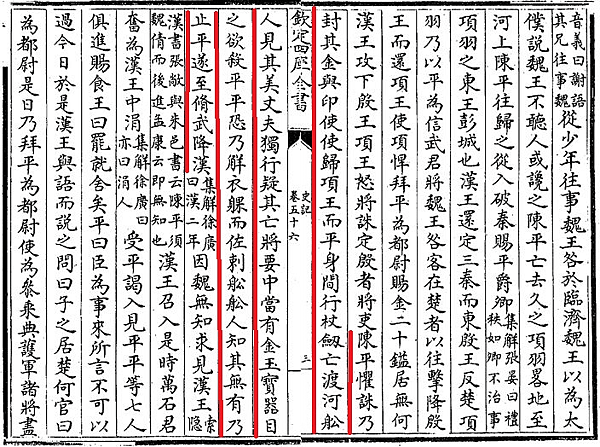 音義曰謝語其兄往事魏從少年往事魏王咎於臨濟魏王以為太
僕說魏王不聽人或讒之陳平亡去久之項羽畧地至
河上陳平往歸之從入破秦賜平爵卿集解張晏曰禮秩如卿不治事
項羽之東王彭城也漢王還定三秦而東殷王反楚項
羽乃以平為信武君將魏王咎客在楚者以往擊降殷
王而還項王使項悍拜平為都尉賜金二十鎰居無何
漢王攻下殷王項王怒將誅定殷者將吏陳平懼誅乃
封其金與印使使歸項王而平身間行杖劒亡渡河船
欽定四庫全書
史記
卷五十六
三
人見其美丈夫獨行疑其亡將要中當有金玉寶器目
之欲殺平平恐乃觧衣躶而佐刺船船人知其無有乃
止平遂至脩武降漢集解徐廣曰漢二年因魏無知求見漢王索隱
漢書張敞與朱邑書云陳平須魏倩而後進孟康云即無知也漢王召入是時萬石君
奮為漢王中涓集解徐廣曰亦曰涓人受平謁入見平平等七人
俱進賜食王曰罷就舍矣平曰臣為事來所言不可以
過今日於是漢王與語而說之問曰子之居楚何官曰
為都尉是日乃拜平為都尉使為參乘典護軍諸將盡